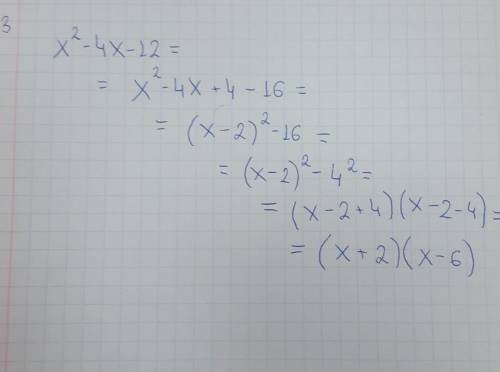 3
x² - 4x - 12 =
= x² - 4x + 4 - 16 =
= (x - 2)² - 16 =
= (x - 2)² - 4² =
= (x - 2 + 4)(x - 2 - 4) =
= (x + 2)(x - 6)